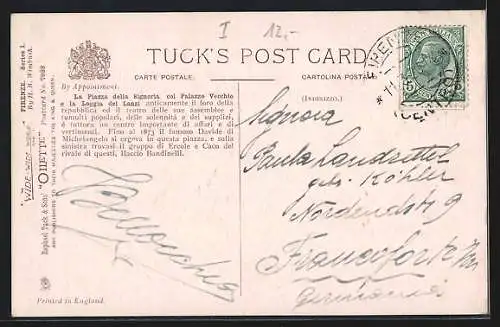 I 12,-
TUCK'S POST CARD
CARTE POSTALE.
CARTOLINA POSTALE.
By Appointment.
(INDIRIZZO).
La Piazza della Signoria, col Palazzo Vecchio
e la Loggia dei Lanzi anticamente il foro della
repubblica ed il teatro delle sue assemblee e
tumulti popolari, delle solennità e dei supplizi,
è tuttora un centro importante di affari e di
vertimenti. Fino al 1873 il famoso Davide di
Michelangelo si ergeva in questa piazza, e nella
sinistra trovasi il gruppo di Ercole e Caco del
rivale di questi, Baccio Bandinelli.
"WIDE-WIDE-WORLD"
FIRENZE. Series I.
By H. B. Wimbush.
Raphael Tuck & Sons' "OILETTE"
Postcard No. 7693
ART PUBLISHERS TO THEIR MAJESTIES THE KING & QUEEN.
Printed in England.
FIRENZE
CENTRO
5
Signora
Paula Landrettel
geb. Köhler
Nordendstr 9
Francoforte /M
Germania